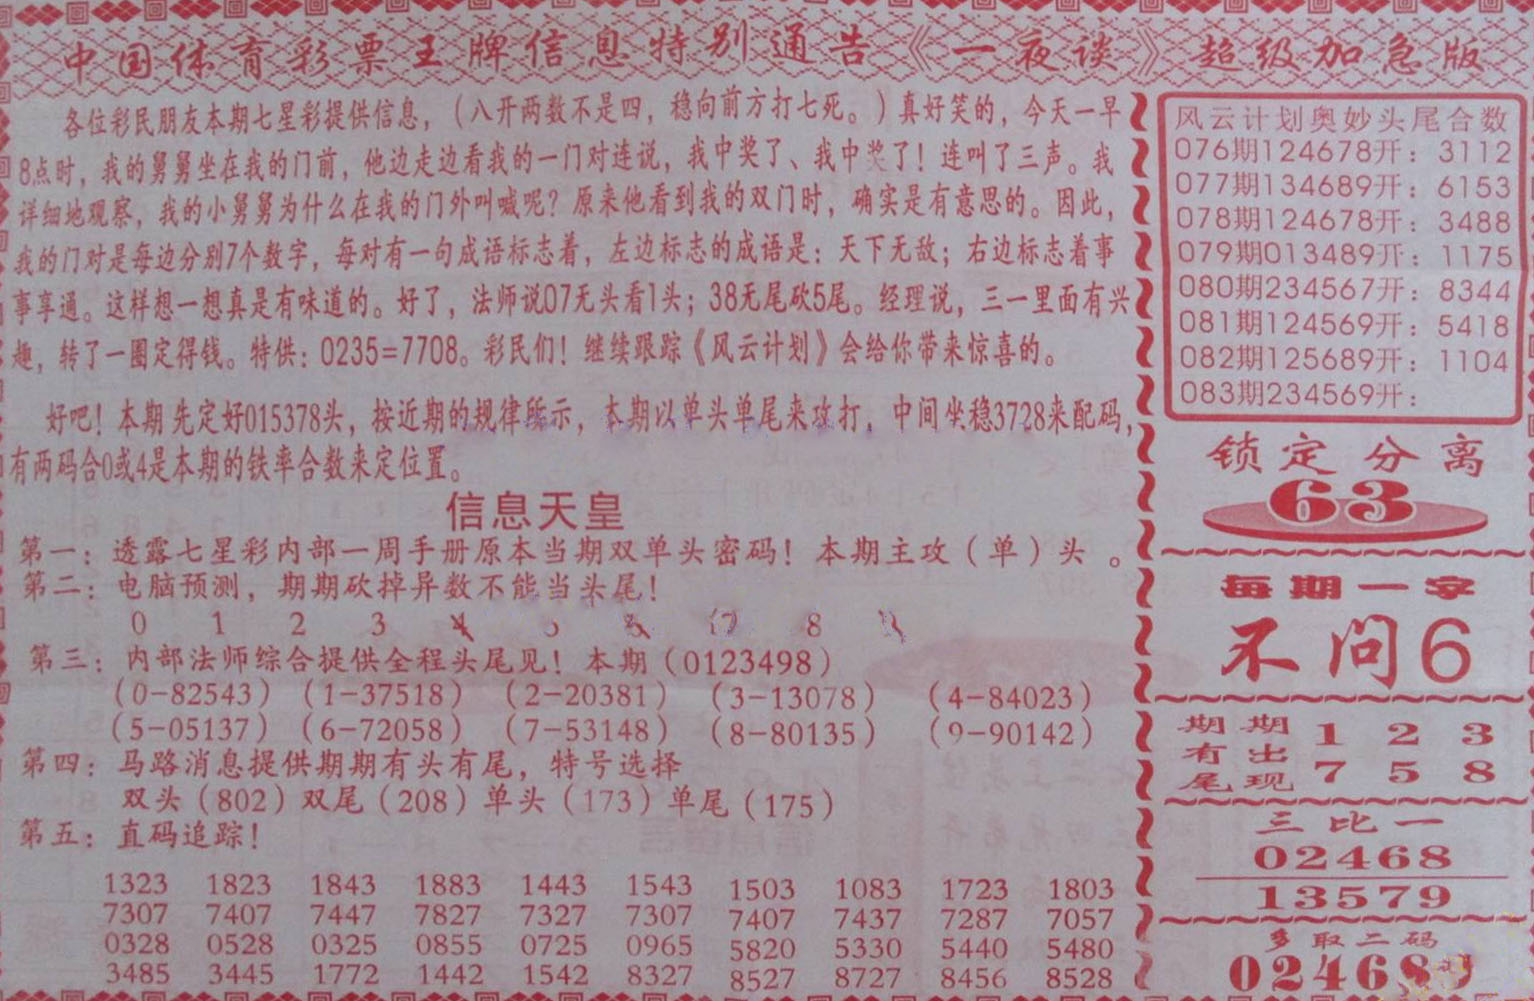 中国体育彩票王牌信息特别通告《一夜谈》超级加急版
各位彩民朋友本期七星彩提供信息，（八开两数不是四，稳向前方打七死。）真好笑的，今天一早
8点时，我的舅舅坐在我的门前，他边走边看我的一门对连说，我中奖了、我中奖了！连叫了三声。我
详细地观察，我的小舅舅为什么在我的门外叫喊呢？原来他看到我的双门时，确实是有意思的。因此，
我的门对是每边分别7个数字，每对有一句成语标志着，左边标志的成语是：天下无敌；右边标志着事
事享通。这样想一想真是有味道的。好了，法师说07无头看1头；38无尾砍5尾。经理说，三一里面有兴
趣，转了一圈定得钱。特供：0235=7708。彩民们！继续跟踪《风云计划》会给你带来惊喜的。
好吧！本期先定好015378头，按近期的规律所示，本期以单头单尾来攻打，中间坐稳3728来配码，
有两码合0或4是本期的铁率合数来定位置。
信息天皇
第一：透露七星彩内部一周手册原本当期双单头密码！本期主攻（单）头。
第二：电脑预测，期期砍掉异数不能当头尾！
0 1 2 3 4 5 6 7 8
第三：内部法师综合提供全程头尾见！本期（0123498）
（0-82543）（1-37518）（2-20381）（3-13078）（4-84023）
（5-05137）（6-72058）（7-53148）（8-80135）（9-90142）
第四：马路消息提供期期有头有尾，特号选择
双头（802）双尾（208）单头（173）单尾（175）
第五：直码追踪！
1323 1823 1843 1883 1443 1543 1503 1083 1723 1803
7307 7407 7447 7827 7327 7307 7407 7437 7287 7057
0328 0528 0325 0855 0725 0965 5820 5330 5440 5480
3485 3445 1772 1442 1542 8327 8527 8727 8456 8528
风云计划奥妙头尾合数
076期124678开：3112
077期134689开：6153
078期124678开：3488
079期013489开：1175
080期234567开：8344
081期124569开：5418
082期125689开：1104
083期234569开：
锁定分离
63
每期一字
不问6
期期 1 2 3
有出
尾现 7 5 8
三比一
02468
13579
多取二码
024689